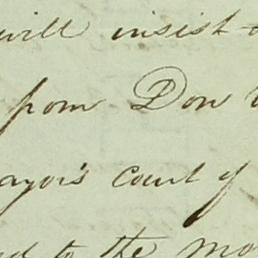 will insist
from Don
ayor's court of
ed to the mo